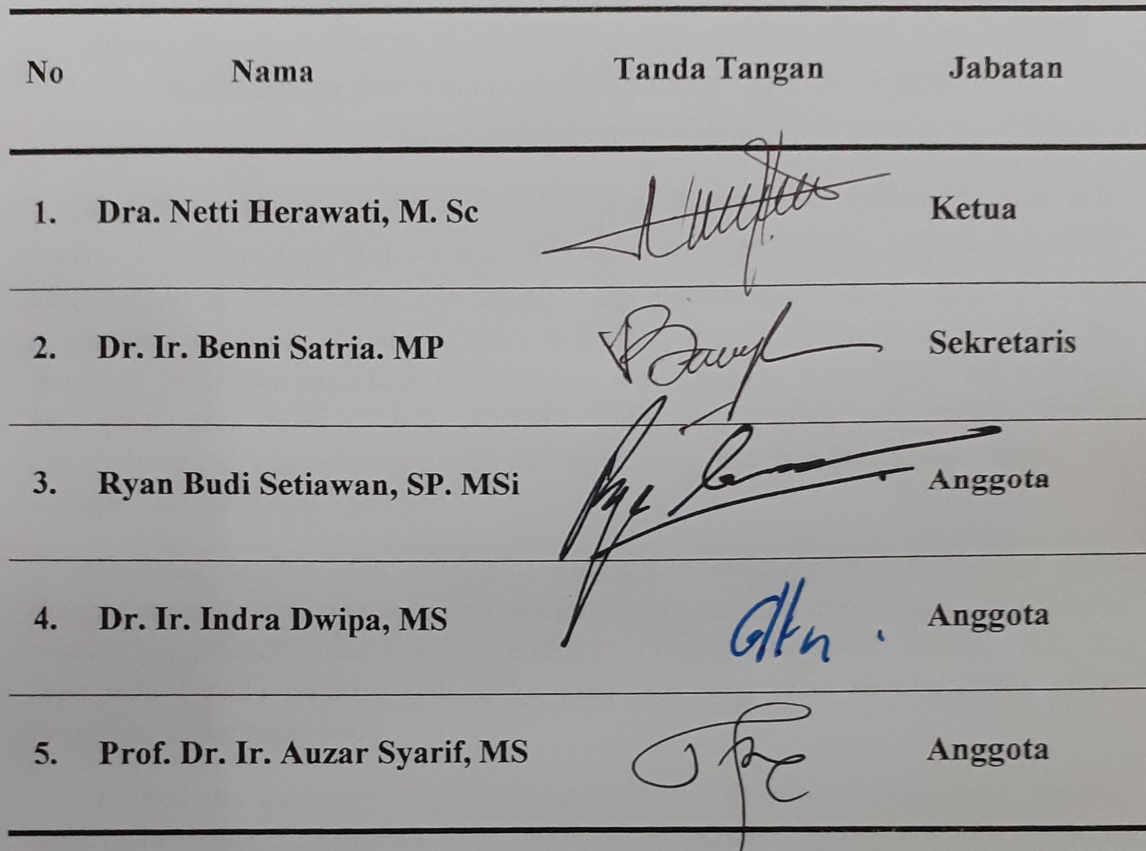 No Nama Tanda Tangan Jabatan
1. Dra. Netti Herawati, M. Sc Ketua
2. Dr. Ir. Benni Satria. MP Sekretaris
3. Ryan Budi Setiawan, SP. MSi Anggota
4. Dr. Ir. Indra Dwipa, MS Anggota
5. Prof. Dr. Ir. Auzar Syarif, MS Anggota